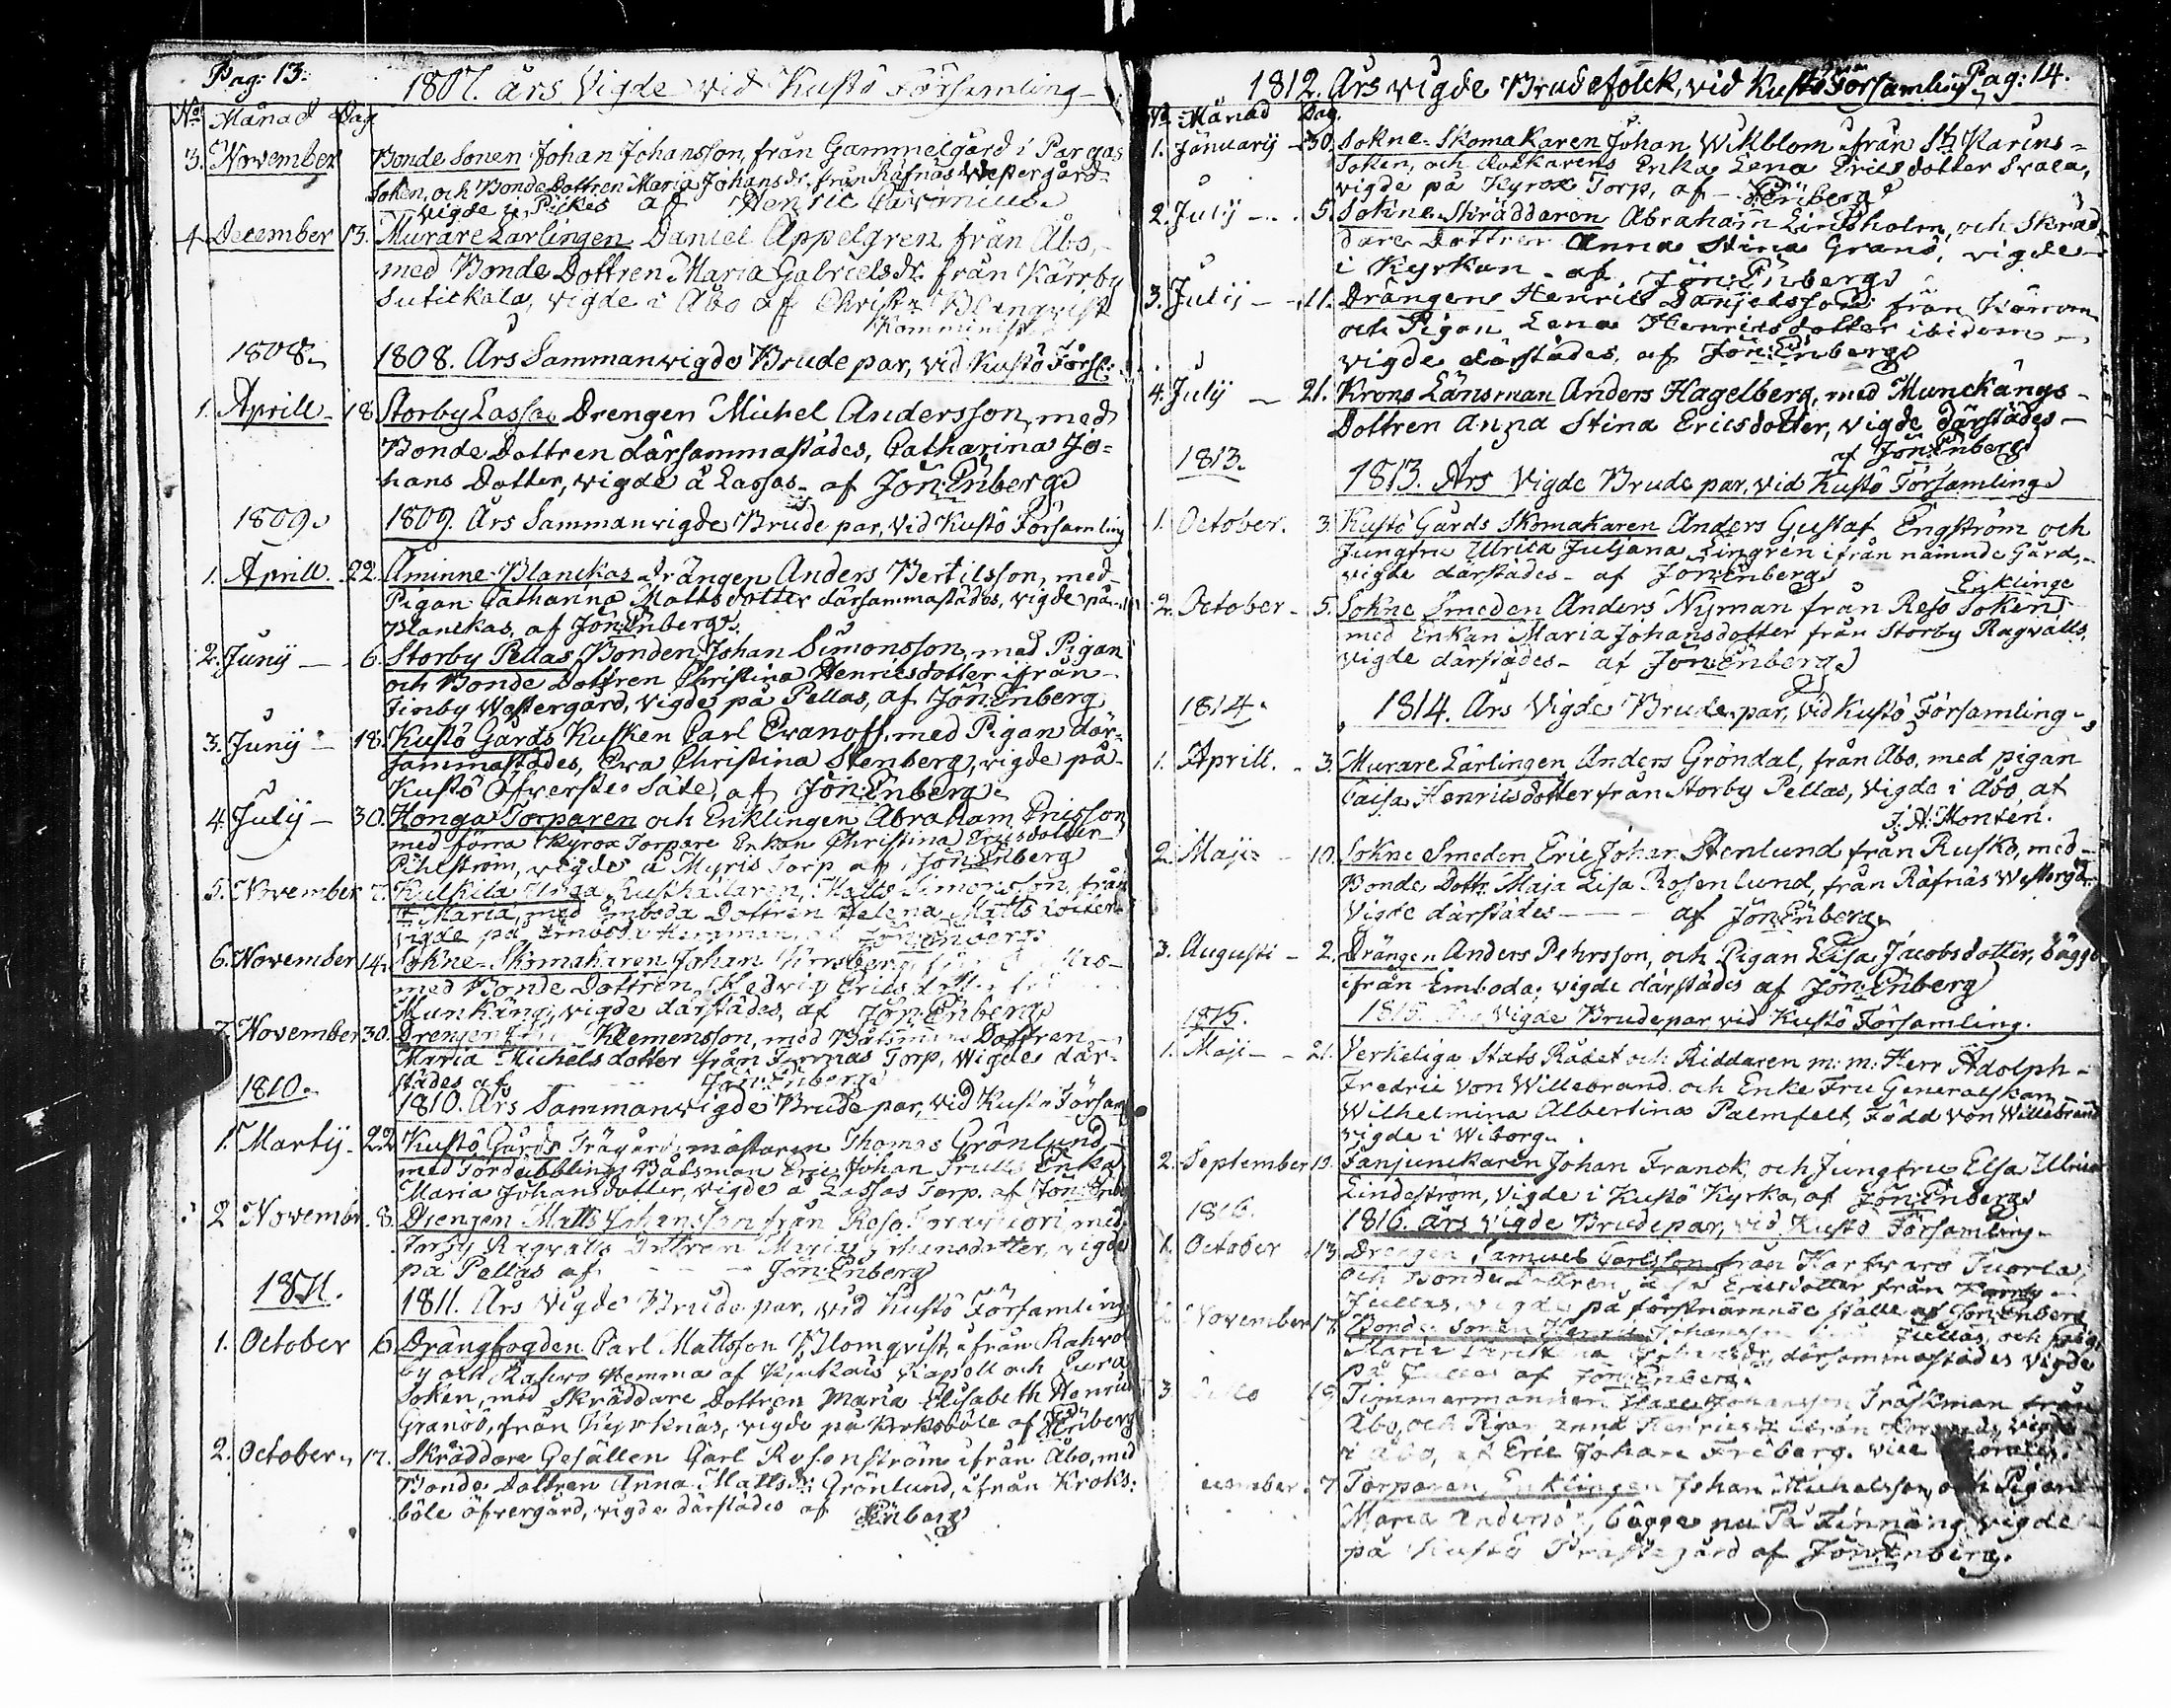 Pag: 13.
1807. års Vigde vid Kustö Församling
No Månad Dag
3. November Bonde Sonen Johan Johansson, från Gammelgård i Pargas
Soken, och Bonde Dottren Maria Johans dr. från Räfnäs Westergård
Vigde i Pikes af Henric
4 December 13. Murare Lärlingen Daniel Appelgren från Åbo,
med Bonde Dottren Maria Gabriels dr. från Kärrby
Sutickala, vigde i Åbo af Christn Blanqvist
Komminist.
1808. 1808. Års Sammanvigde Brude par, vid Kustö Förs:
1. Aprill 18 Storby Lassas Drengen Michel Andersson, med
Bonde Dottren därsammastädes, Catharina Jo=
hans Dotter, vigde å Lassas af Jön: Enberg
1809. 1809. Års Sammanvigde Brude par, vid Kustö Församling
1. Aprill. 22. Åminne Blanckas drängen Anders Bertilsson, med
Pigan Catharina Mattsdotter därsammastädes, vigde på
Blanckas, af Jön: Enberg.
2. Junij 6. Storby Pellas Bonden Johan Simonsson, med Pigan
och Bonde Dottren Christina Henricsdotter ifrån
Jimby Wästergård, Vigde på Pellas, af Jön: Enberg
3. Junij 18. Kustö Gårds Kusken Carl Ivanoff, med Pigan där=
sammastädes, Eva Christina Stenberg, vigde på
Kustö Öfverste Säte, af Jön: Enberg.
4. Julij 30. Honga Torparen och Enklingen Abraham Ericsson
med förra Kyrox Torpare Enkan Christina Ericsdotter
Pihlström, vigde å Myris Torp af Jön: Enberg
5. November 7. Rusthållaren, Matts Simonsson, från
St. Maria, med Emboda Dottren Helena Matts dotter
vigde på Emboda af Jön: Enberg.
6. November 14. Sokne-Skomakaren Johan
med Bonde Dottren Hedvig Erics dotter
Munkäng, vigde därstädes, af Jön: Enberg
7. November 30. Drengen Klemensson, med Båtsmans Dottren
Maria Michelsdotter från Torp, Vigde där=
städes af Jön: Enberg
1810. 1810. Års Sammanvigde Brude par, vid Kustö Försam
1. Martij 22. Kustö Gårds Trägårdsmästaren Thomas Grönlund,
med Båtsman Eric Johan Enka
Maria Johansdotter, vigde å Lassas Torp. af Jön: Enb
2 Novembr. 8. Drengen Matts Johansson från Reso med
Storby Ragvalls Dottren Maria Johansdotter, vigde
på Pellas af Jön: Enberg
1811. 1811. Års Vigde Brude par, vid Kustö Församling
1. October 6. Drängfogden Carl Mattsson Blomqvist, ifrån Rahvo
by och Rahvo Hemma af Kapell och Eura
Soken, med Skräddare Dottren Maria Elisabeth Henrics
Granöö, från Kyrknäs, vigde på Kroksböle af Enberg
2. October 17. Skräddare Gesällen Carl Rosenström ifrån Åbo, med
Bonde Dottren Anna Matts dr: Grönlund, ifrån Kroks=
böle öfvergård, vigde därstädes af Enberg
1812. Års vigde Brudefolck, vid Kustö Församling Pag: 14.
No Månad Dag.
1. Januarij 30. Sokne-Skomakaren Johan Wikblom ifrån St. Karins=
Soken, och Enka Lena Ericsdotter Svala,
vigde på Kyrox Torp, af Enberg
2. Julij 5. Sokne-Skräddaren Abraham Lindholm, och Skräd
dare Dottren Anna Stina Granö, vigde
i Kyrkan af Jön: Enberg
3. Julij 11. Drängen Henric Danjelsson från
och Pigan Lena Henricsdotter ibidem
vigde därstädes. af Jön: Enberg
4. Julij 21. Krono Länsman Anders Hagelberg, med Munckängs
Dottren Anna Stina Ericsdotter, Vigde därstädes
af Jön: Enberg
1813. 1813. Års Vigde Brude par, vid Kustö Församling
1. October. 3. Kustö Gårds Skomakaren Anders Gustaf Engström och
Jungfru Ulrica Juljana Lingren ifrån nämnde Gård,
vigde därstädes af Jön: Enberg
Enklinge
2. October 5. Sokne Smeden Anders Nyman från Reso Soken
med Enkan Maria Johansdotter från Storby Ragvalls,
vigde därstädes af Jön: Enberg
1814. 1814. Års Vigde Brude par, vid Kustö Församling
1. Aprill. 3. Murare Lärlingen Anders Gröndal, från Åbo, med pigan
Caisa Henricsdotter från Storby Pellas, Vigde i Åbo, af
J. H. Montén.
2. Maji 10. Sokne Smeden Eric Johan Stenlund från Rusko, med
Bonde Dottr. Maja Lisa Rosenlund, från Räfnäs Westergd.
Vigde därstädes af Jön: Enberg
3. Augusti 2. Drängen Anders Pehrsson, och Pigan Lisa Jacobsdotter, bägge
ifrån Emboda, vigde därstädes af Jön: Enberg
1815. 1815. Års Vigde Brudepar vid Kustö Församling.
1. Maji 21. Verkeliga Stats Rådet och Riddaren m: m: Herr Adolph
Fredric von Willebrand och Enke Fru Generalskan
Wilhelmina Albertina Palmfelt, Född von Willebrand
vigde i Wiborg.
2. September 10. Fanjunckaren Johan Franck, och Jungfru Elsa Ulrica
Lindeström, Vigde i Kustö Kyrka, af Jön: Enberg
1816. 1816. års vigde Brudepar, vid Kustö Församling
1. October 13. Drengen Samuel Carlsson från Tuorla,
och Bonde Dottren Ericsdotter från Kärrby
Jullas, vigde på förstnämnde ställe af Jön: Enberg
2. November 17. Bonde Sonen Henric Johansson Jullas, och
Maria därsammastädes Vigde
på Jullas af Jön: Enberg.
3. 19. Timmermannen Johansson Träskman från
Åbo, och Pigan Anna Henrics dr ifrån Vigde
i Åbo, af Eric Johan Fréberg. vice
December 7 Torparen, Enklingen Johan Michelsson och Pigan
Maria bägge nu På Finnäng, vigde
på Kustö Prästegård af Jön: Enberg.